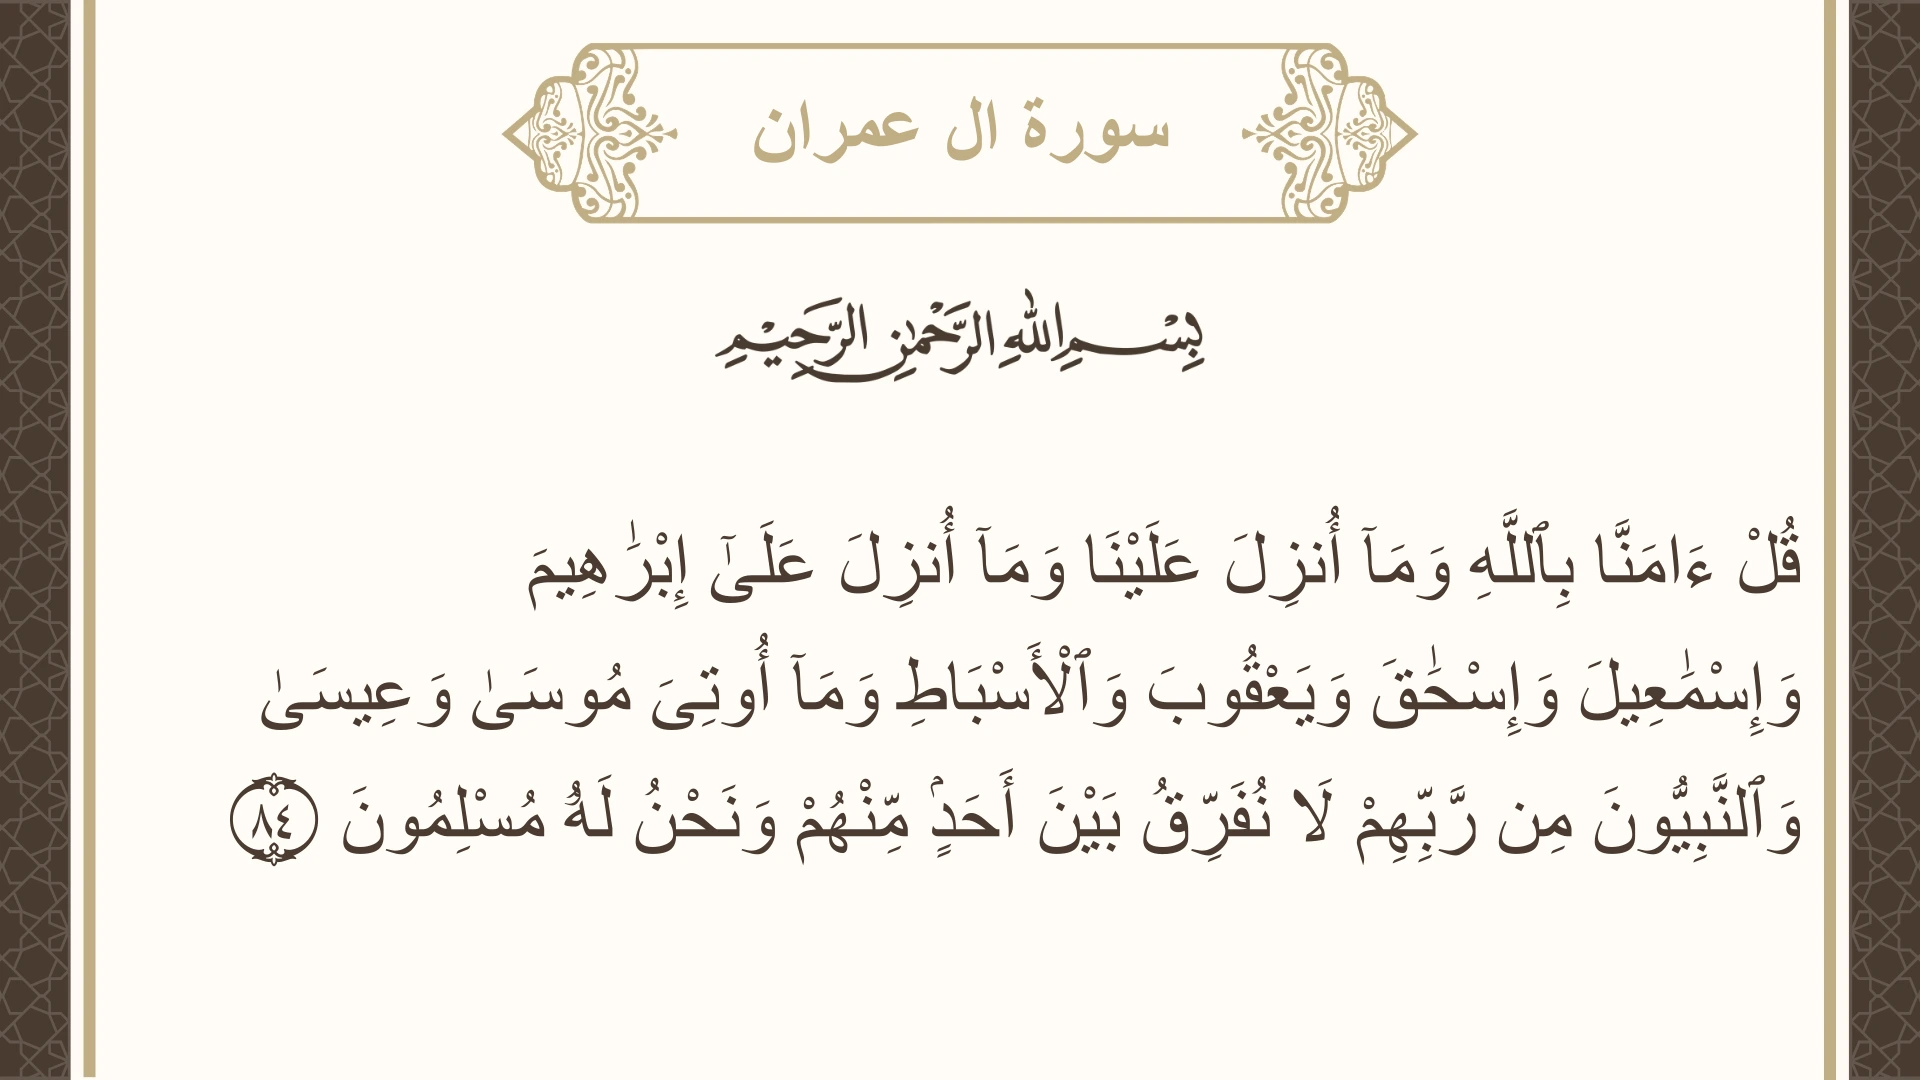 سورة ال عمران
بِسْمِ اللهِ الرَّحْمٰنِ الرَّحِيْمِ
قُلْ ءَامَنَّا بِٱللَّهِ وَمَآ أُنزِلَ عَلَيْنَا وَمَآ أُنزِلَ عَلَىٰٓ إِبْرَٰهِيمَ
وَإِسْمَٰعِيلَ وَإِسْحَٰقَ وَيَعْقُوبَ وَٱلْأَسْبَاطِ وَمَآ أُوتِىَ مُوسَىٰ وَعِيسَىٰ
وَٱلنَّبِيُّونَ مِن رَّبِّهِمْ لَا نُفَرِّقُ بَيْنَ أَحَدٍۢ مِّنْهُمْ وَنَحْنُ لَهُۥ مُسْلِمُونَ ٨٤